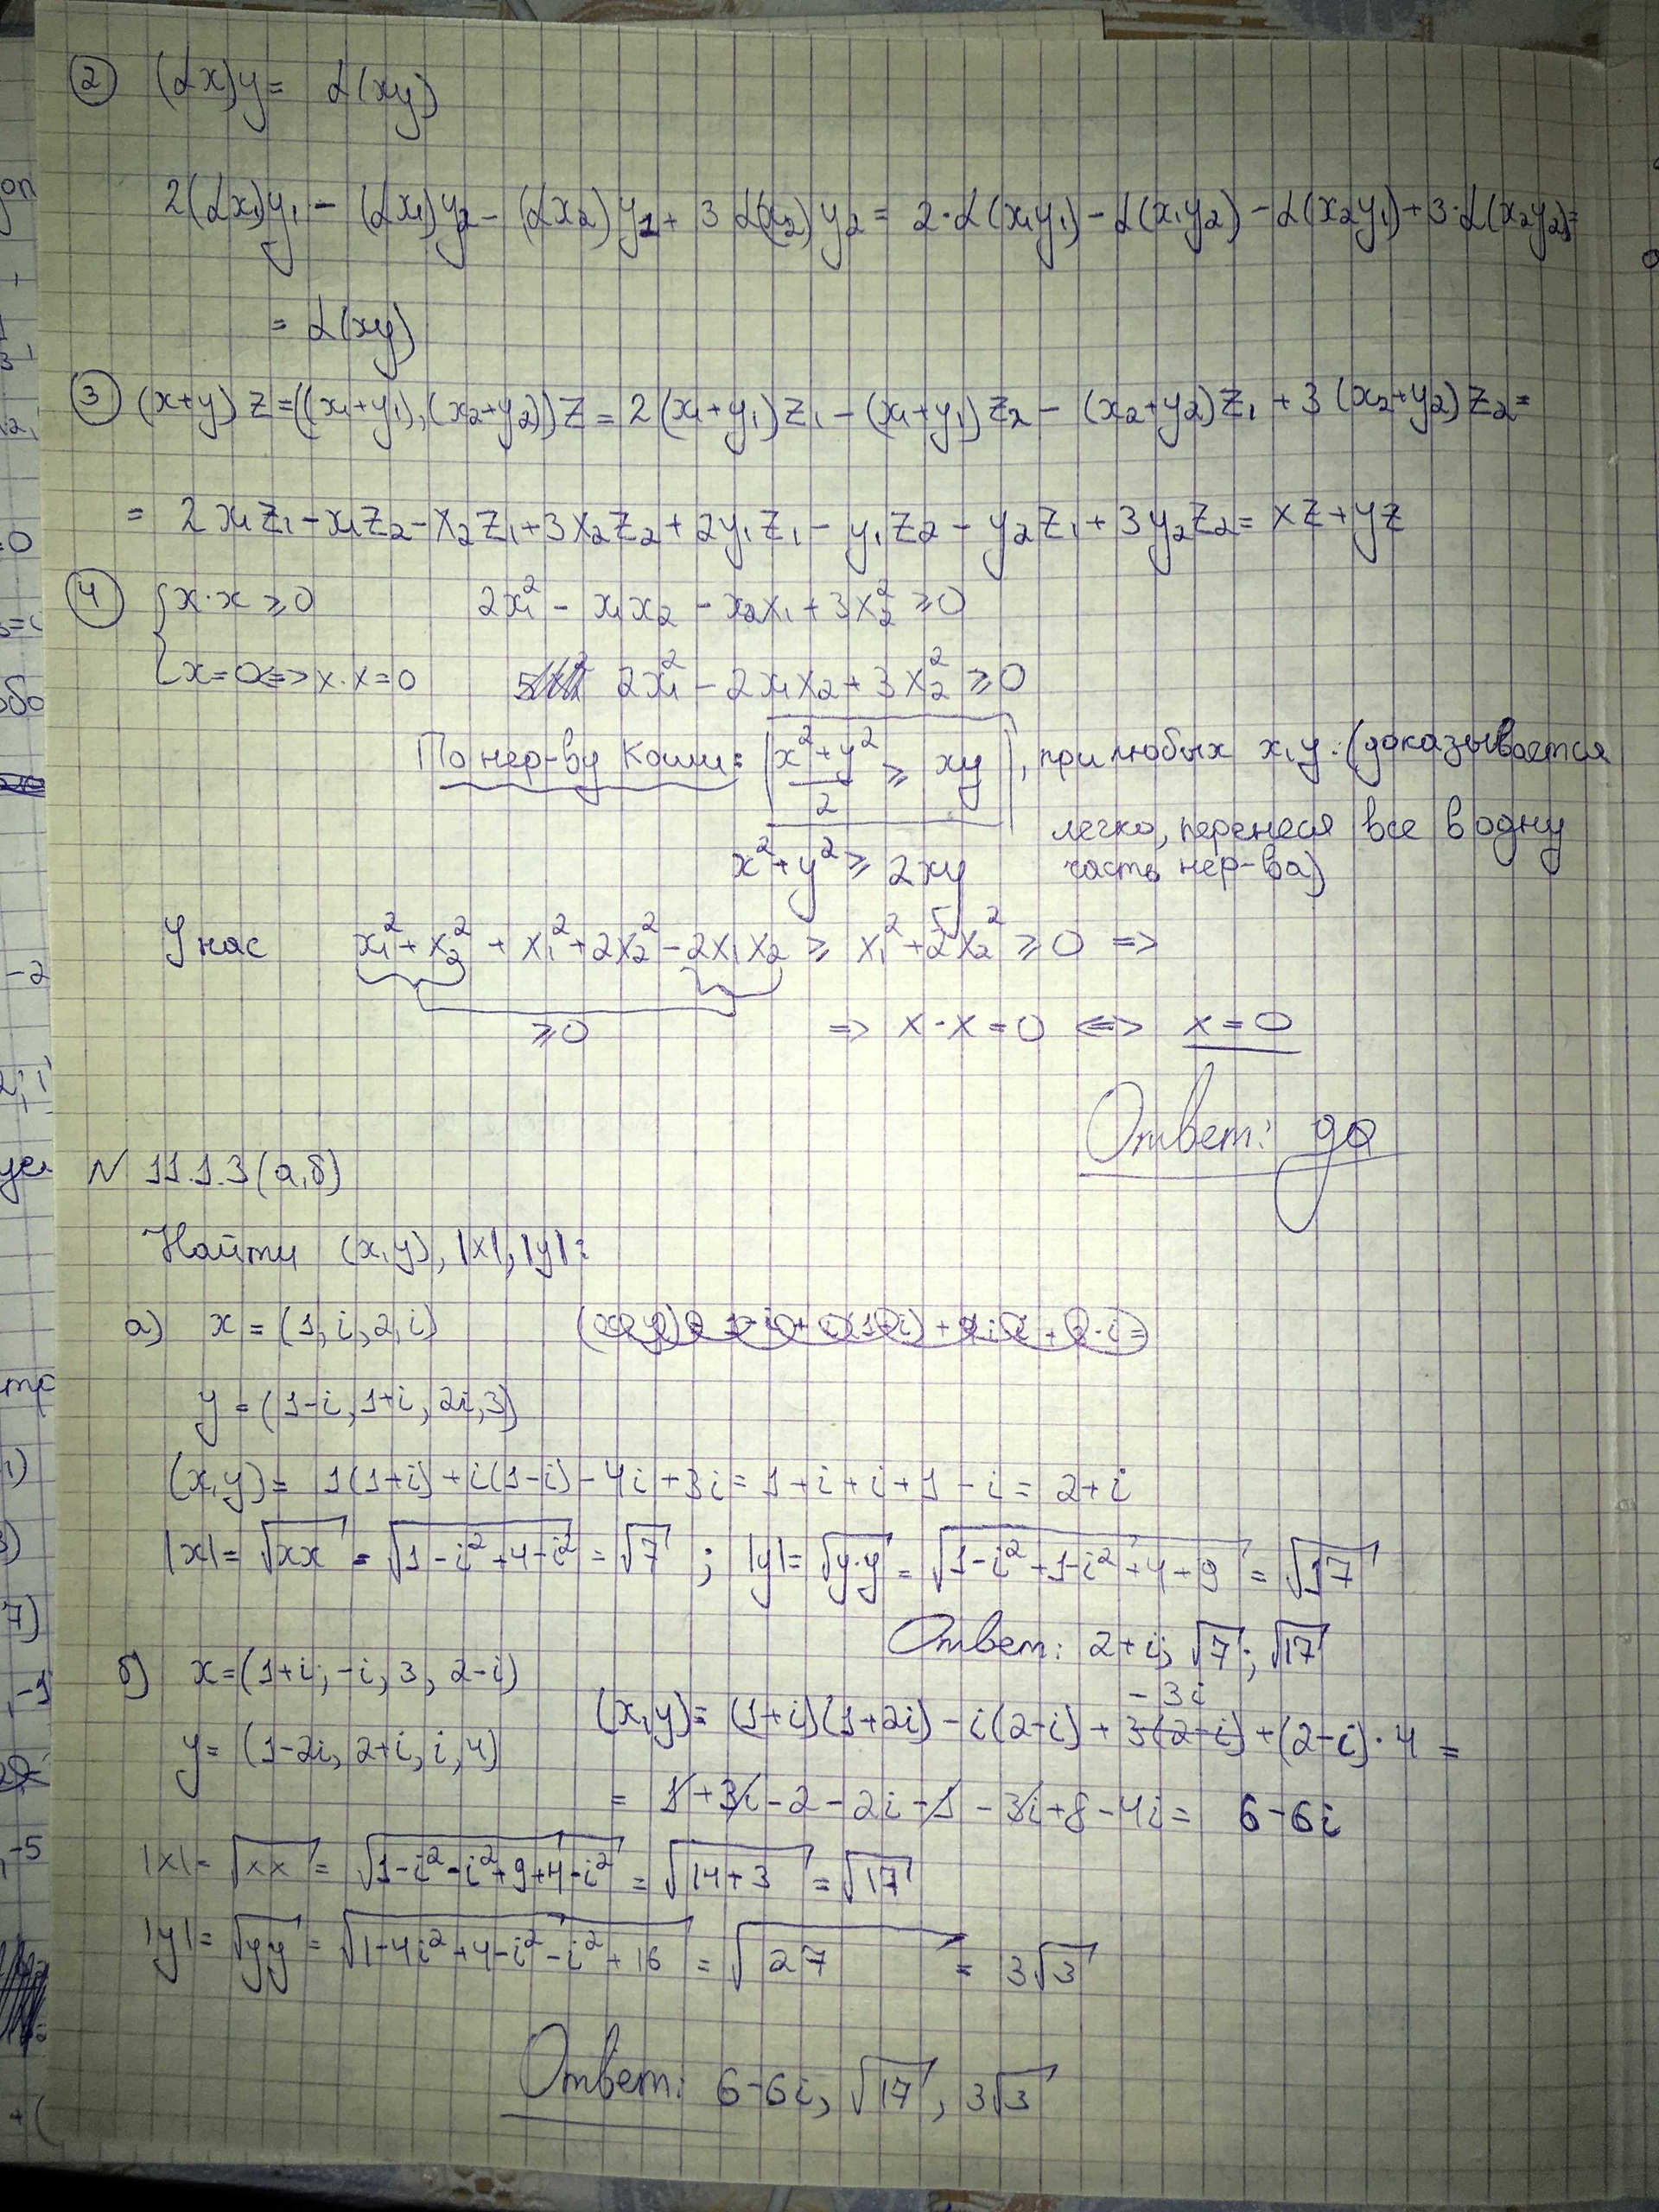 ② (αx)y = α(xy)
2(αx₁)y₁ - (αx₁)y₂ - (αx₂)y₁ + 3α(x₂)y₂ = 2·α(x₁y₁) - α(x₁y₂) - α(x₂y₁) + 3·α(x₂y₂) =
= α(xy)
③ (x+y)z = ((x₁+y₁),(x₂+y₂))z = 2(x₁+y₁)z₁ - (x₁+y₁)z₂ - (x₂+y₂)z₁ + 3(x₂+y₂)z₂ =
= 2x₁z₁ - x₁z₂ - x₂z₁ + 3x₂z₂ + 2y₁z₁ - y₁z₂ - y₂z₁ + 3y₂z₂ = xz + yz
④ { x·x ≥ 0 2x₁² - x₁x₂ - x₂x₁ + 3x₂² ≥ 0
x=0 <=> x·x=0 2x₁² - 2x₁x₂ + 3x₂² ≥ 0
По нер-ву Коши: (x²+y²)/2 ≥ xy, при любых x,y. (доказывается
легко, перенеся все в одну
x²+y² ≥ 2xy часть нер-ва)
У нас x₁² + x₂² + x₁² + 2x₂² - 2x₁x₂ ≥ x₁² + 2x₂² ≥ 0 =>
≥0 => x·x = 0 <=> x = 0
Ответ: да
N 11.1.3 (а,б)
Найти (x,y), |x|, |y|:
а) x = (1, i, 2, i)
y = (1-i, 1+i, 2i, 3)
(x,y) = 1(1+i) + i(1-i) - 4i + 3i = 1 + i + i + 1 - i = 2+i
|x| = √xx = √(1-i²+4-i²) = √7 ; |y| = √y·y = √(1-i²+1-i²+4+9) = √17
Ответ: 2+i; √7; √17
б) x = (1+i; -i, 3, 2-i)
- 3i
(x,y) = (1+i)(1+2i) - i(2-i) + 3(2-i) + (2-i)·4 =
y = (1-2i, 2+i, i, 4)
= 1 + 3i - 2 - 2i - 1 - 3i + 8 - 4i = 6 - 6i
|x| = √xx = √(1-i²-i²+9+4-i²) = √(14+3) = √17
|y| = √yy = √(1-4i²+4-i²-i²+16) = √27 = 3√3
Ответ: 6-6i, √17, 3√3